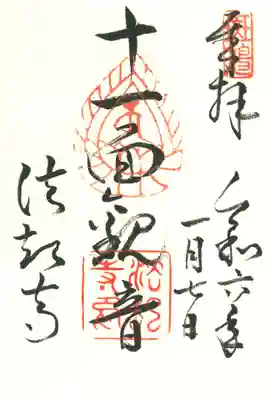 奉拝
令和六年
一月七日
十一面観音
法起寺